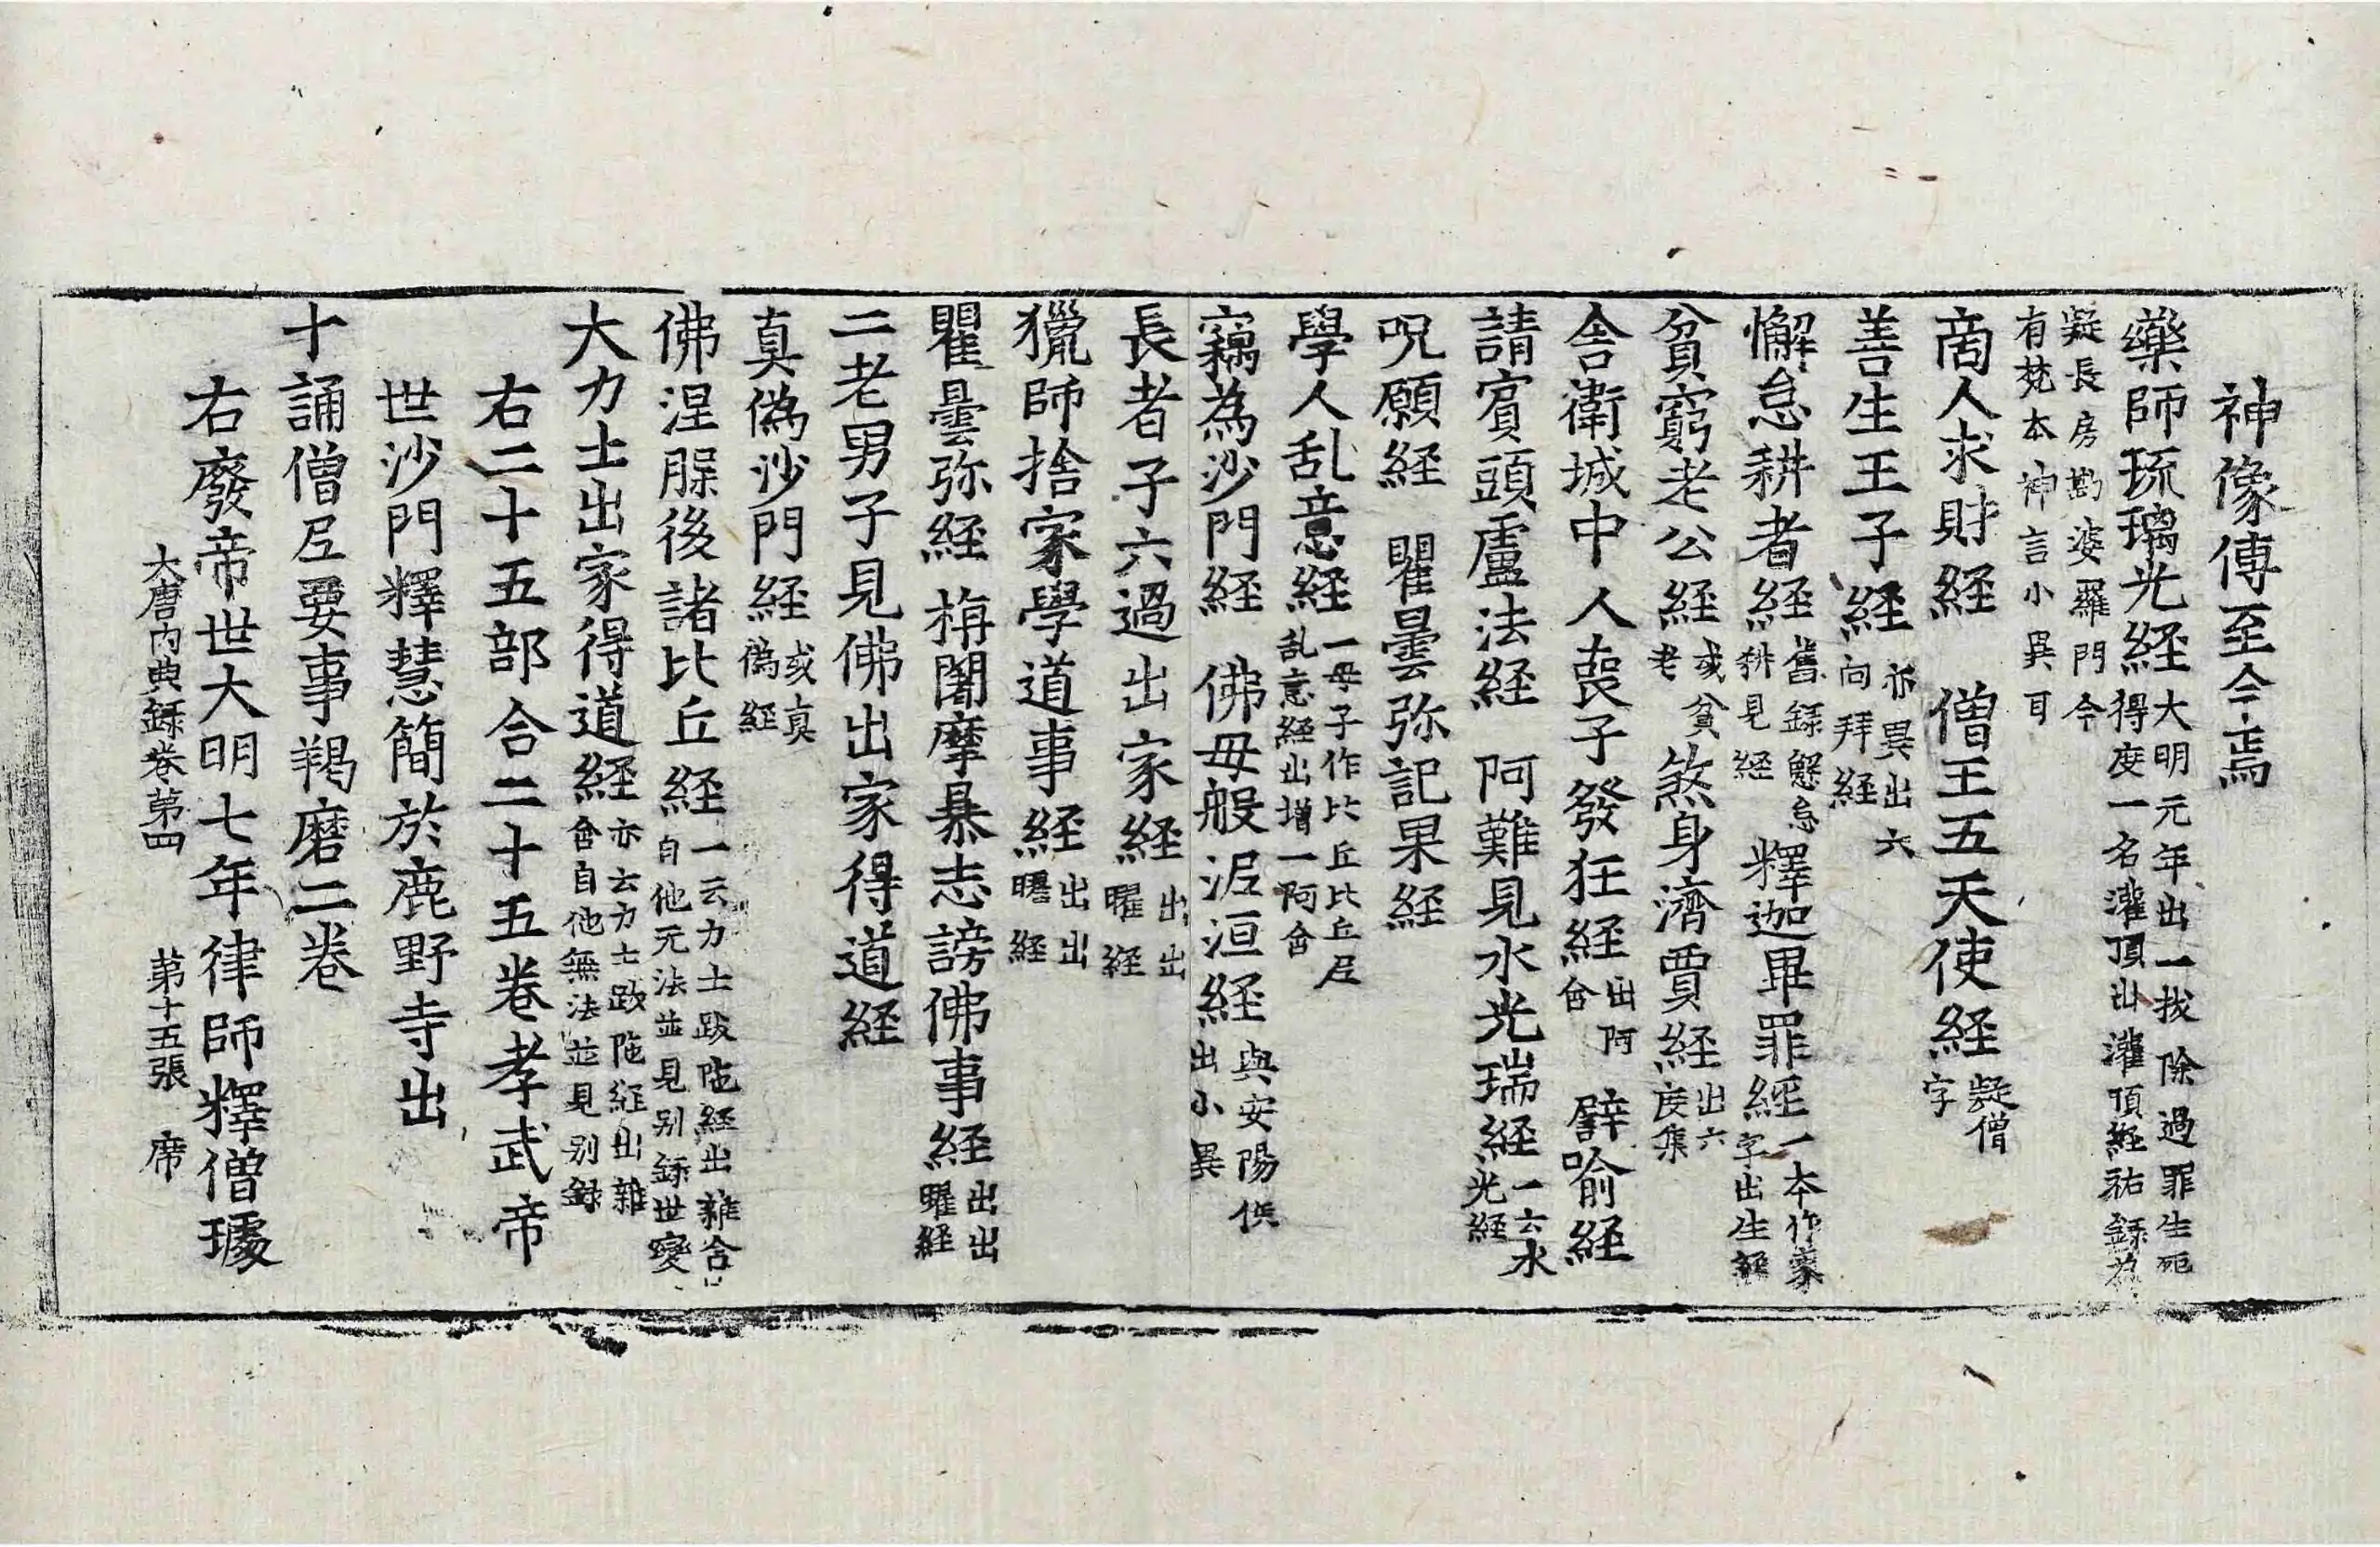 神像傅至今焉
藥師琉璃光経大明元年出一拔除過罪生死得度一名灌頂出灌頂経祐錄為
疑長房勘婆羅門今有梵本神言小異耳
啇人求財経　僧王五天使経疑僧字
善生王子経亦異出六向拜経
懈怠耕者経舊録懈怠耕見経　釋迦畢罪経一本作蒙字出生経
貧窮老公経或貧老　煞身濟賈経出六度集
舎衛城中人喪子發狂経出阿含　譬喻経
請賓頭盧法経　阿難見水光瑞経一云水光経
呪願経　瞿曇弥記果経
學人乱意経一母子作比丘比丘尼乱意経出増一阿含
竊為沙門経　佛母般泥洹経與安陽供出小異
長者子六過出家経出出曜経
獵師捨家學道事経出出曜経
瞿曇弥経　栴闍摩暴志謗佛事経出出曜経
二老男子見佛出家得道経
真偽沙門経或真偽経
佛涅脵後諸比丘経一云力士跋陁経出雜含自他无法並見别錄世變
大力士出家得道経亦云力士跋陁経出雜含自他無法並見别録
右二十五部合二十五卷孝武帝
世沙門釋慧簡於鹿野寺出
十誦僧尼要事羯磨二卷
右廢帝世大明七年律師釋僧璩
大唐内典録卷第四　第十五張　席